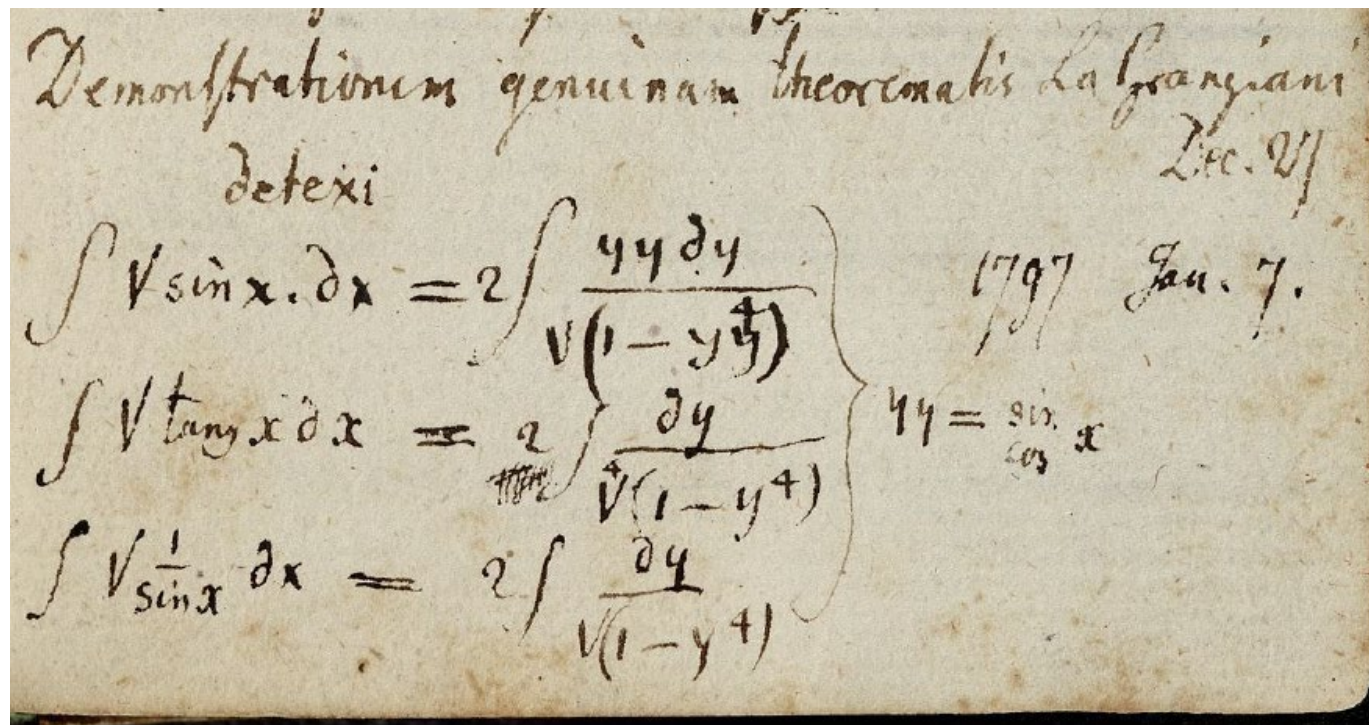 Demonstrationem genuinam theorematis La Grangiani
detexi
Dec. 27
∫ √sin x. ∂x = 2 ∫ yy ∂y / √(1 − y⁴)
1797 Jan. 7.
∫ √tang x ∂x = 2 ∫ ∂y / ⁴√(1 − y⁴)
yy = sin cos x
∫ √ 1/sin x ∂x = 2 ∫ ∂y / √(1 − y⁴)